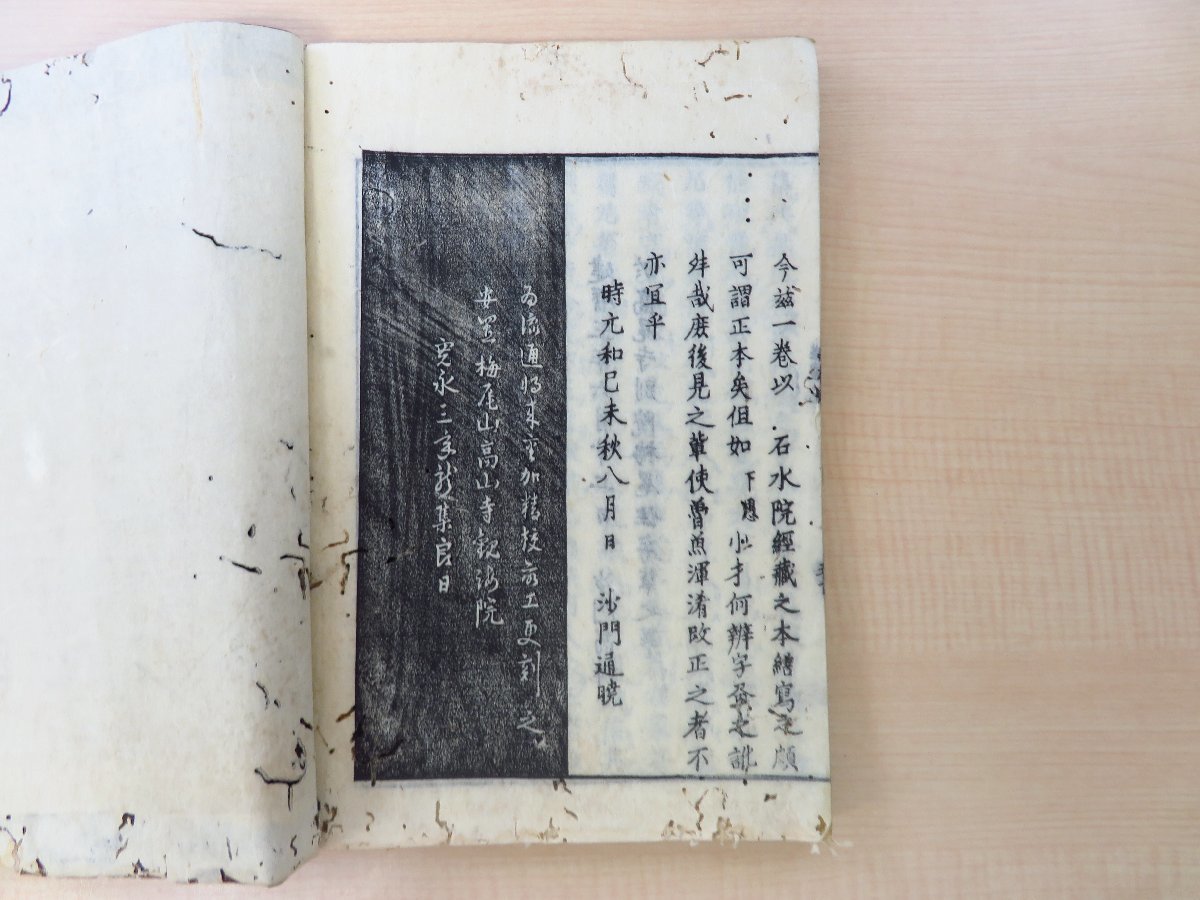 今茲一卷以 石水院經藏之本繕寫之頗
可謂正本矣但如下愚少才何辨字癸之訛
舛哉庶後見之輩使魯魚渾淆改正之者不
亦冝乎
時元和己未秋八月日 沙門通曉
為流通加精挍命工更刻之
安置梅尾山高山寺観海院
寛永三年龍集良日